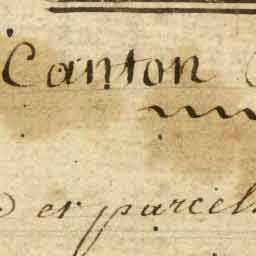 Canton
et parcel